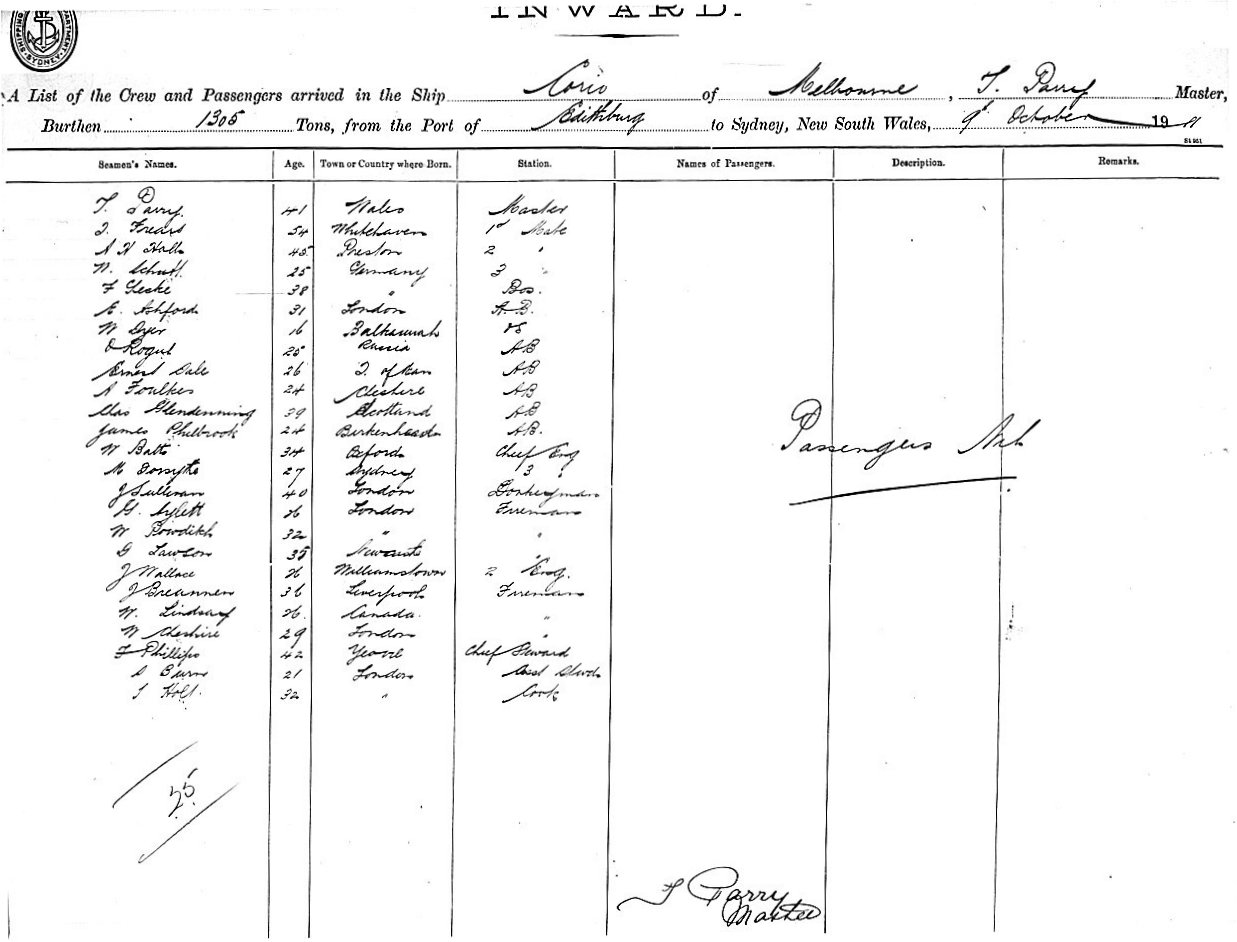 SHIPPING DEPARTMENT. SYDNEY
INWARD.
A List of the Crew and Passengers arrived in the Ship Corio of Melbourne, T. Parry Master,
Burthen 1305 Tons, from the Port of Edithburg to Sydney, New South Wales, 9th October 19
S1 951
Seamen's Names. Age. Town or Country where Born. Station. Names of Passengers. Description. Remarks.
T. Parry 41 Wales Master
Frears 54 Whitehaven 1st Mate
A H Halls 45 Preston 2 "
W. Schutt 25 Germany 3 "
F Geske 38 " Bos.
E. Ashford 31 London A.B.
W Dyer 16 OS
Rogul 25 Russia AB
Ernest Dale 26 I. of Man AB
A Foulkes 24 Cheshire AB
Chas Glendenning 39 Scotland AB
James Philbrook 24 Birkenhead AB.
W Batts 34 Oxford Chief Eng
M Forsyth 27 Sydney 3 "
J Sullivan 40 London Donkeyman
G. Aylett 26 London Fireman
W Bowditch 32 " "
G Lawson 35 Newcastle "
J Wallace 26 Williamstown 2 Eng.
J Breannen 36 Liverpool Fireman
W. Lindsay 26. Canada. "
W Cheshire 29 London "
F Phillips 42 Yeovil Chief Steward
Burns 21 London Asst Stwd
Holt. 32 " Cook
Passengers Nil
25
T Parry
Master